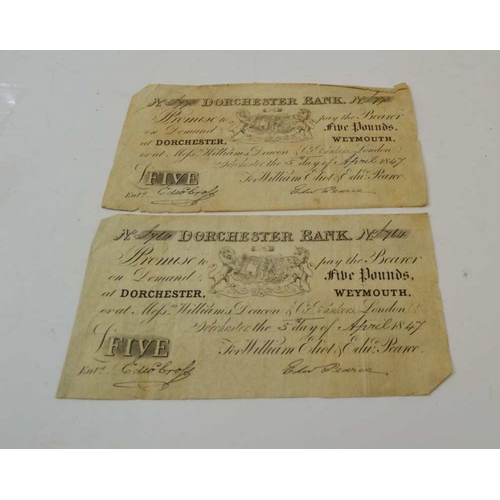 No DORCHESTER BANK. No
I Promise to pay the Bearer
on Demand Five Pounds,
at DORCHESTER, WEYMOUTH.
or at Messrs Williams Deacon & Co Bankers London
Dorchester the 5th day of April 1847
£ FIVE For William Eliot & Edwd. Pearce
Entd. Edwd Pearce
No DORCHESTER BANK. No
I Promise to pay the Bearer
on Demand Five Pounds,
at DORCHESTER, WEYMOUTH.
or at Messrs Williams Deacon & Co Bankers London
Dorchester the 5th day of April 1847
£ FIVE For William Eliot & Edwd. Pearce
Entd. Edwd Pearce